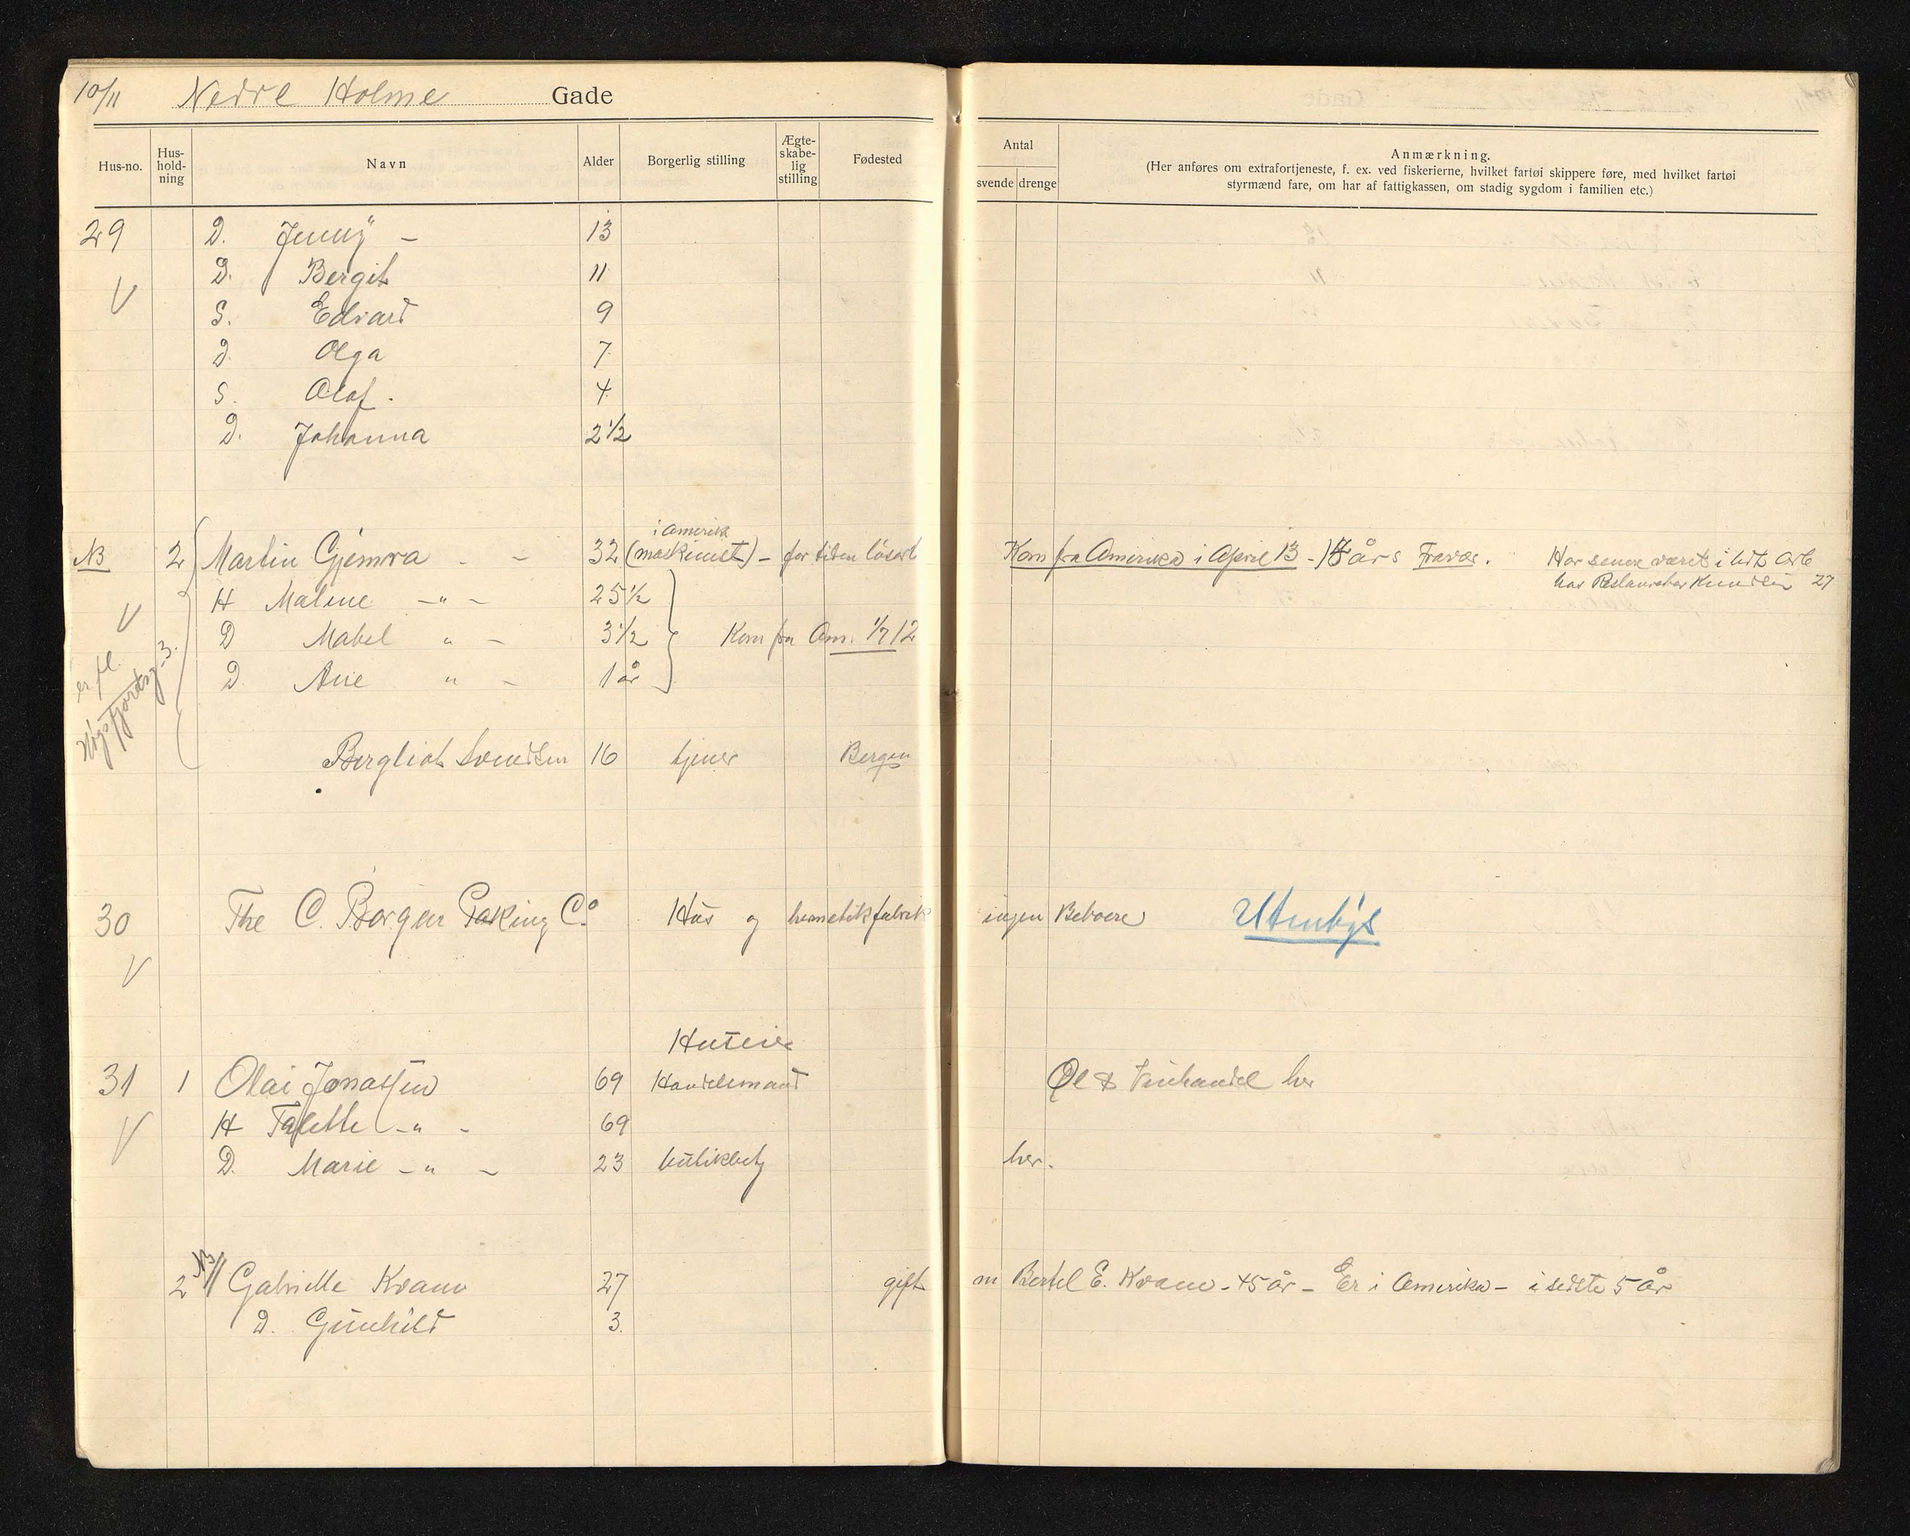 10/11 Nedre Holme Gade
Hus-no. Hus-hold-ning Navn Alder Borgerlig stilling Ægte-skabe-lig stilling Fødested Antal svende drenge Anmærkning.
(Her anføres om extrafortjeneste, f. ex. ved fiskerierne, hvilket fartøi skippere føre, med hvilket fartøi
styrmænd fare, om har af fattigkassen, om stadig sygdom i familien etc.)
29 D. Jenny — 13
V D. Bergit 11
S. Edvard 9
D. Olga 7
S. Olaf. 4
D. Johanna 2 1/2
i Amerik
NB 2 Martin Gjemra - - 32 (maskinist) - for tiden løsarb Kom fra Amerika i April 13 - års Fravær. Har senere været i lidt Arb
hos Knudsen 27
V H Maline -"- 25 1/2
D Mabel " - 3 1/2 Kom fra Am. 1/7 12
D. Arie " - 1 år
er fl. 3.
Bergliot Svendsen 16 tjener Bergen
30 The C. Borgen Paking Co. Hus og hermetikfabrik ingen Beboere Utenbys
V
Huseier
31 1 Olai Jonassen 69 Handelsmand Øl & Vinhandel her
V H Talette -"- 69
D. Marie -"- 23 butikbetj her.
2 NB Gabrielle Kvam 27 gift m Bertel E. Kvam - 45 år - Er i Amerika - i sidste 5 år
D. Gunhild 3.